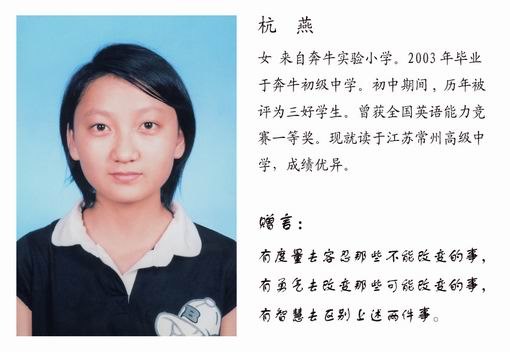 杭 燕
女 来自奔牛实验小学。2003年毕业
于奔牛初级中学。初中期间，历年被
评为三好学生。曾获全国英语能力竞
赛一等奖。现就读于江苏常州高级中
学，成绩优异。
赠言：
有度量去容忍那些不能改变的事，
有勇气去改变那些可能改变的事，
有智慧去区别上述两件事。
B